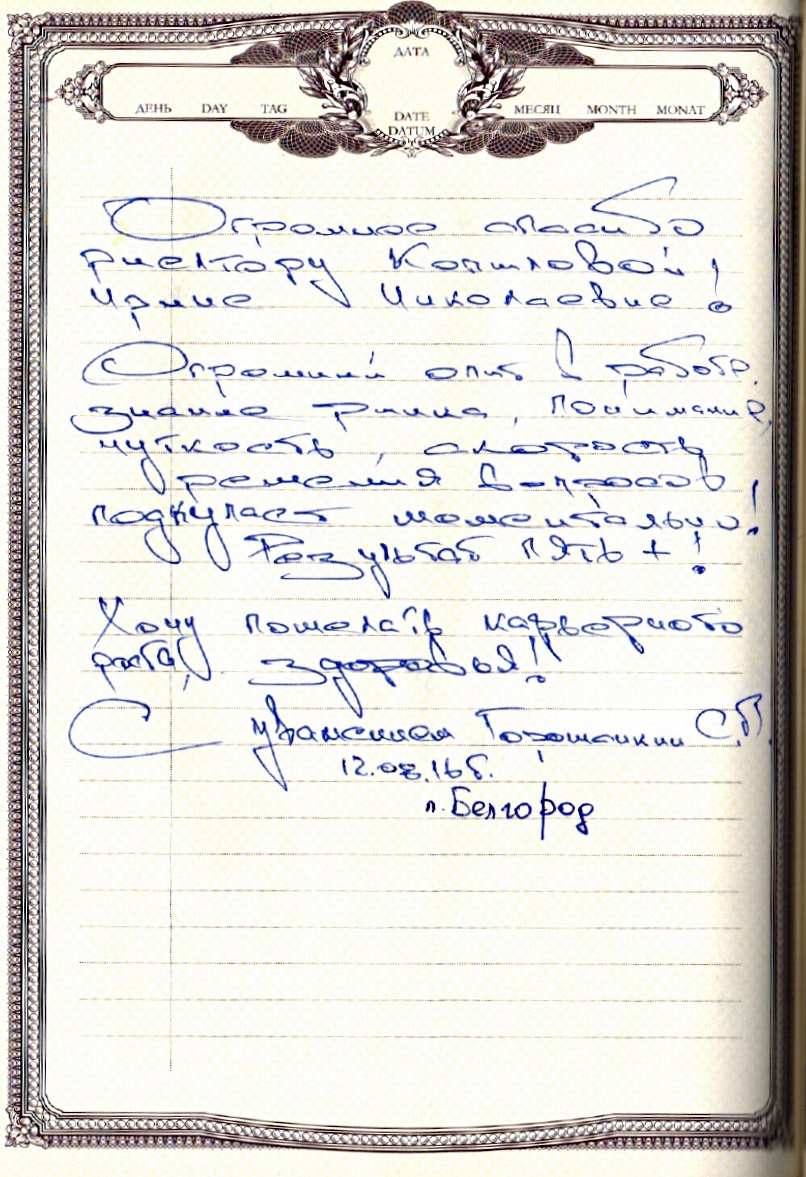 ДАТА
ДЕНЬ DAY TAG
МЕСЯЦ MONTH MONAT
DATE
DATUM
Огромное спасибо
риелтору Копыловой
Ирине Николаевне!
Огромный опыт в работе,
знание рынка, понимание,
чуткость, скорость
решения вопросов
подкупает моментально!
Результат пять +!
Хочу пожелать карьерного
роста, здоровья!!
С уважением С.П.
12.08.16г.
г. Белгород